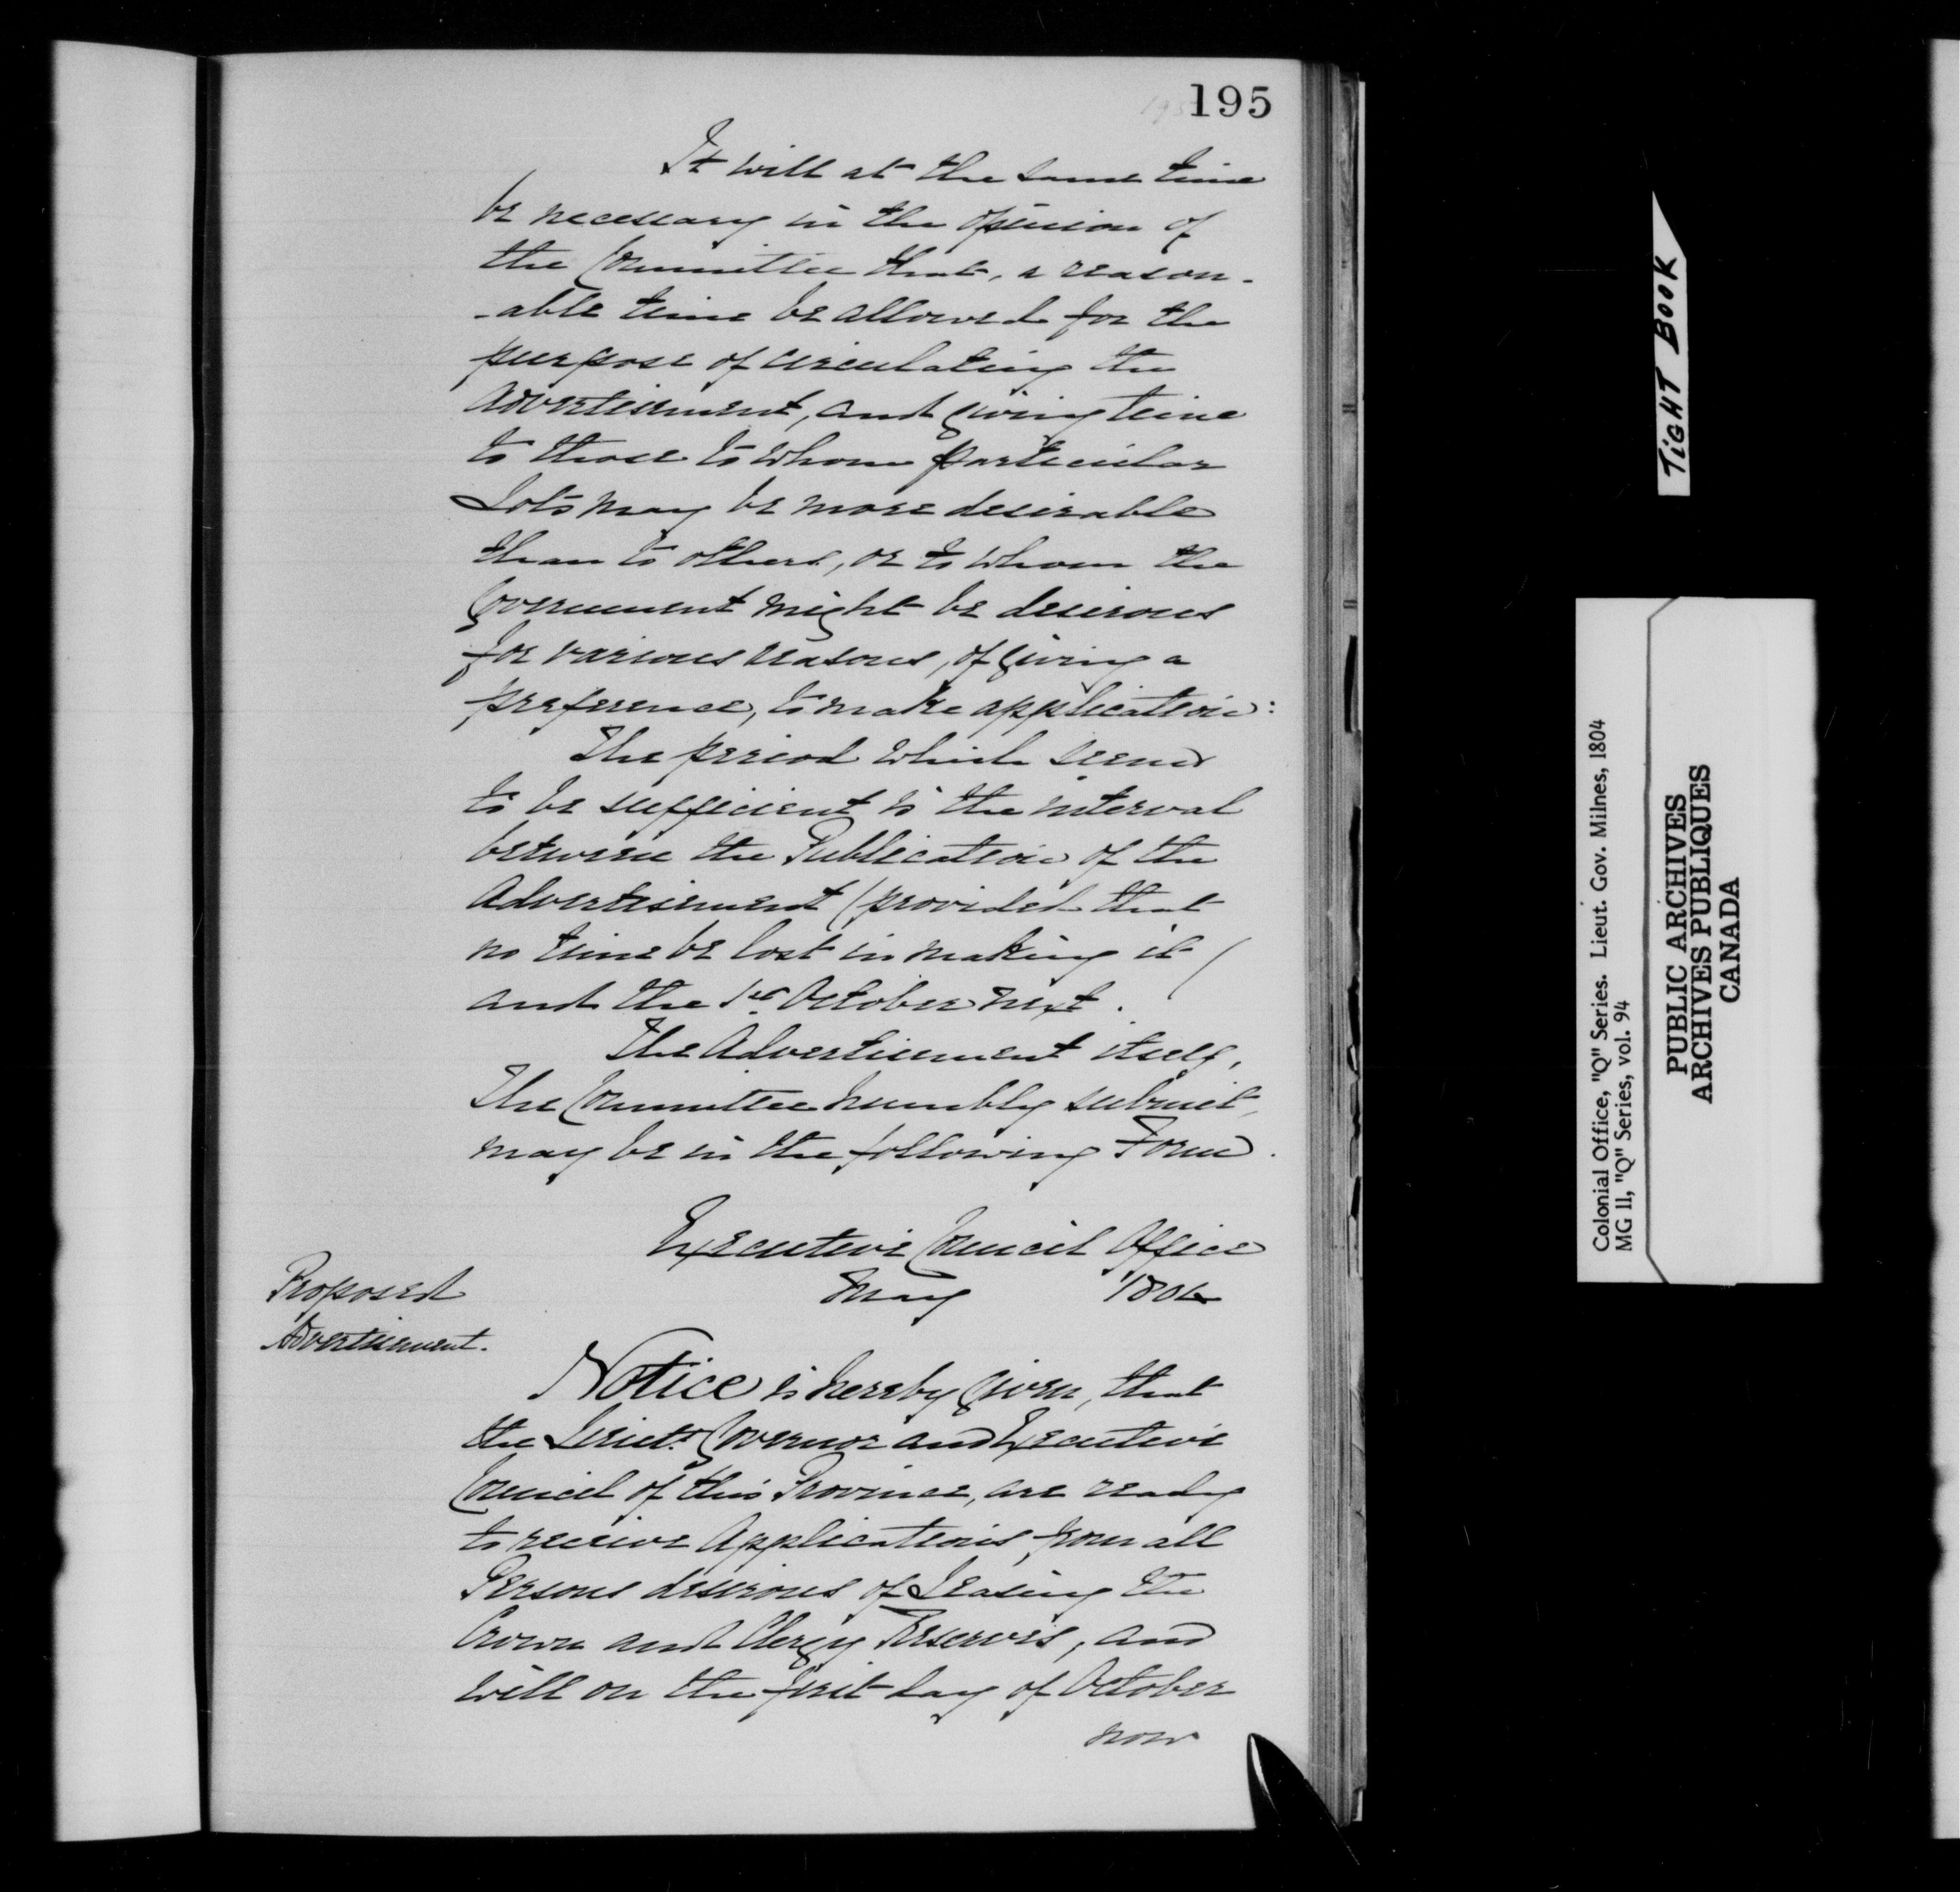 195
It will at the same time
be necessary in the opinion of
the Committee that, a reason-
-able time be allowed for the
purpose of circulating the
Advertisement, and giving time
to those to whom particular
Lots may be more desirable
than to others, or to whom the
Government might be desirous
for various reasons, of giving a
preference, to make application:
The period which seems
to be sufficient is the interval
between the Publication of the
Advertisement (provided that
no time be lost in making it (
and the 1st October next.
The Advertisement itself,
The Committee humbly submit,
may be in the following Form.
Executive Council Office
May 1804
Proposed
Advertisement.
Notice is hereby given, that
the Lieut. Governor and Executive
Council of this Province, are ready
to receive Applications from all
Persons desirous of Leasing the
Crown and Clergy Reserves, and
will on the first day of October
now
TIGHT BOOK
Colonial Office, "Q" Series. Lieut. Gov. Milnes, 1804
MG 11, "Q" Series, vol. 94
PUBLIC ARCHIVES
ARCHIVES PUBLIQUES
CANADA